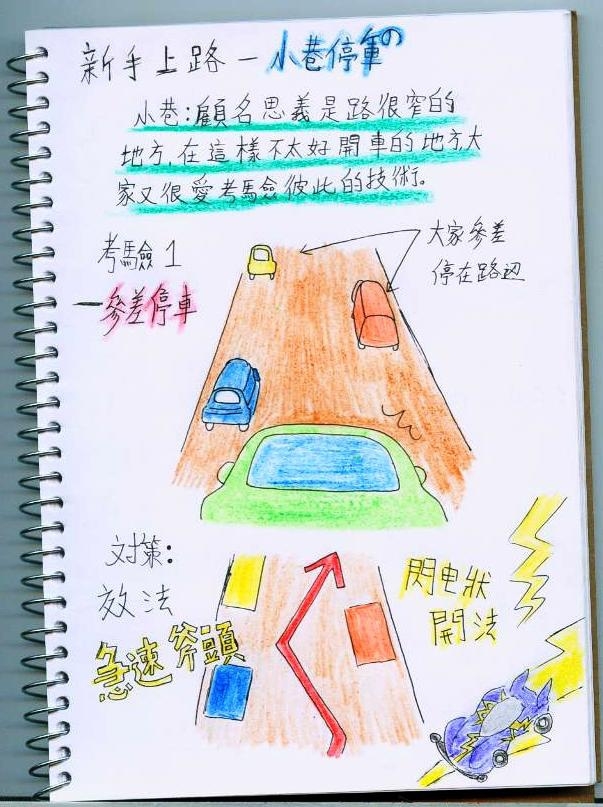 新手上路－小巷停車の
小巷:顧名思義是路很窄的
地方,在這樣不太好開車的地方,大
家又很愛考驗彼此的技術。
考驗1
－參差停車
大家參差
停在路边
対策:
效法
急速斧頭
閃电狀
開法